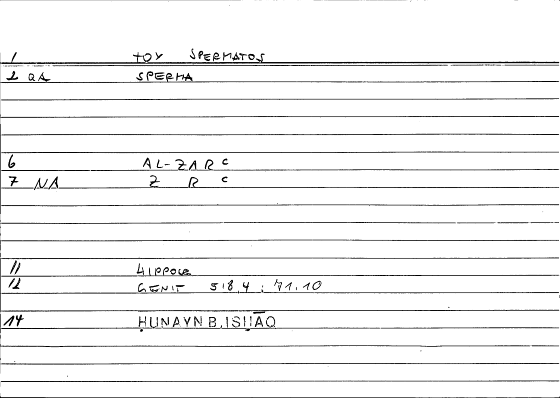 1 TOY SPERMATOS
2 QA SPERMA
6 AL-ZAR ᶜ
7 NA Z R ᶜ
11 HIPPOCR
12 GENIT 518,4 ; 71.10
14 ḤUNAYN B. ISḤĀQ